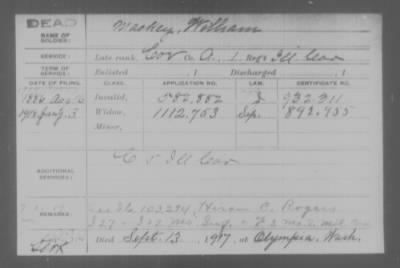 DEAD
NAME OF SOLDIER: Mackey, William
SERVICE: Late rank, Cor Co. A, 1 Reg't Ill Cav
TERM OF SERVICE: Enlisted , 1 Discharged , 1
DATE OF FILING. CLASS. APPLICATION NO. LAW. CERTIFICATE NO.
1886 Aug Invalid, 582,882 932,211
1918 Jan'y. 3 Widow, 1112,753 Sep. 892,455
Minor,
ADDITIONAL SERVICES: C 5 Ill Cav
REMARKS: 103294, Hiram C. Rogers
Died Sept. 13, 1917, at Olympia, Wash.